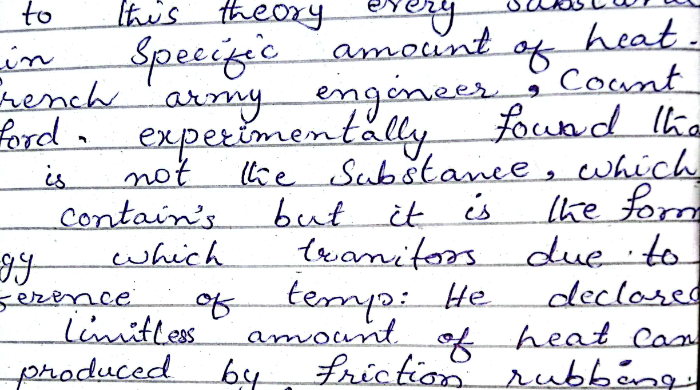 to this theory every
in Specific amount of heat.
rench army engineer, Count
ford. experimentally found tha
is not the Substance, which
contain's but it is the form
gy which tranitors due to
ference of temp: He declared
limitless amount of heat can
produced by friction rubbing.